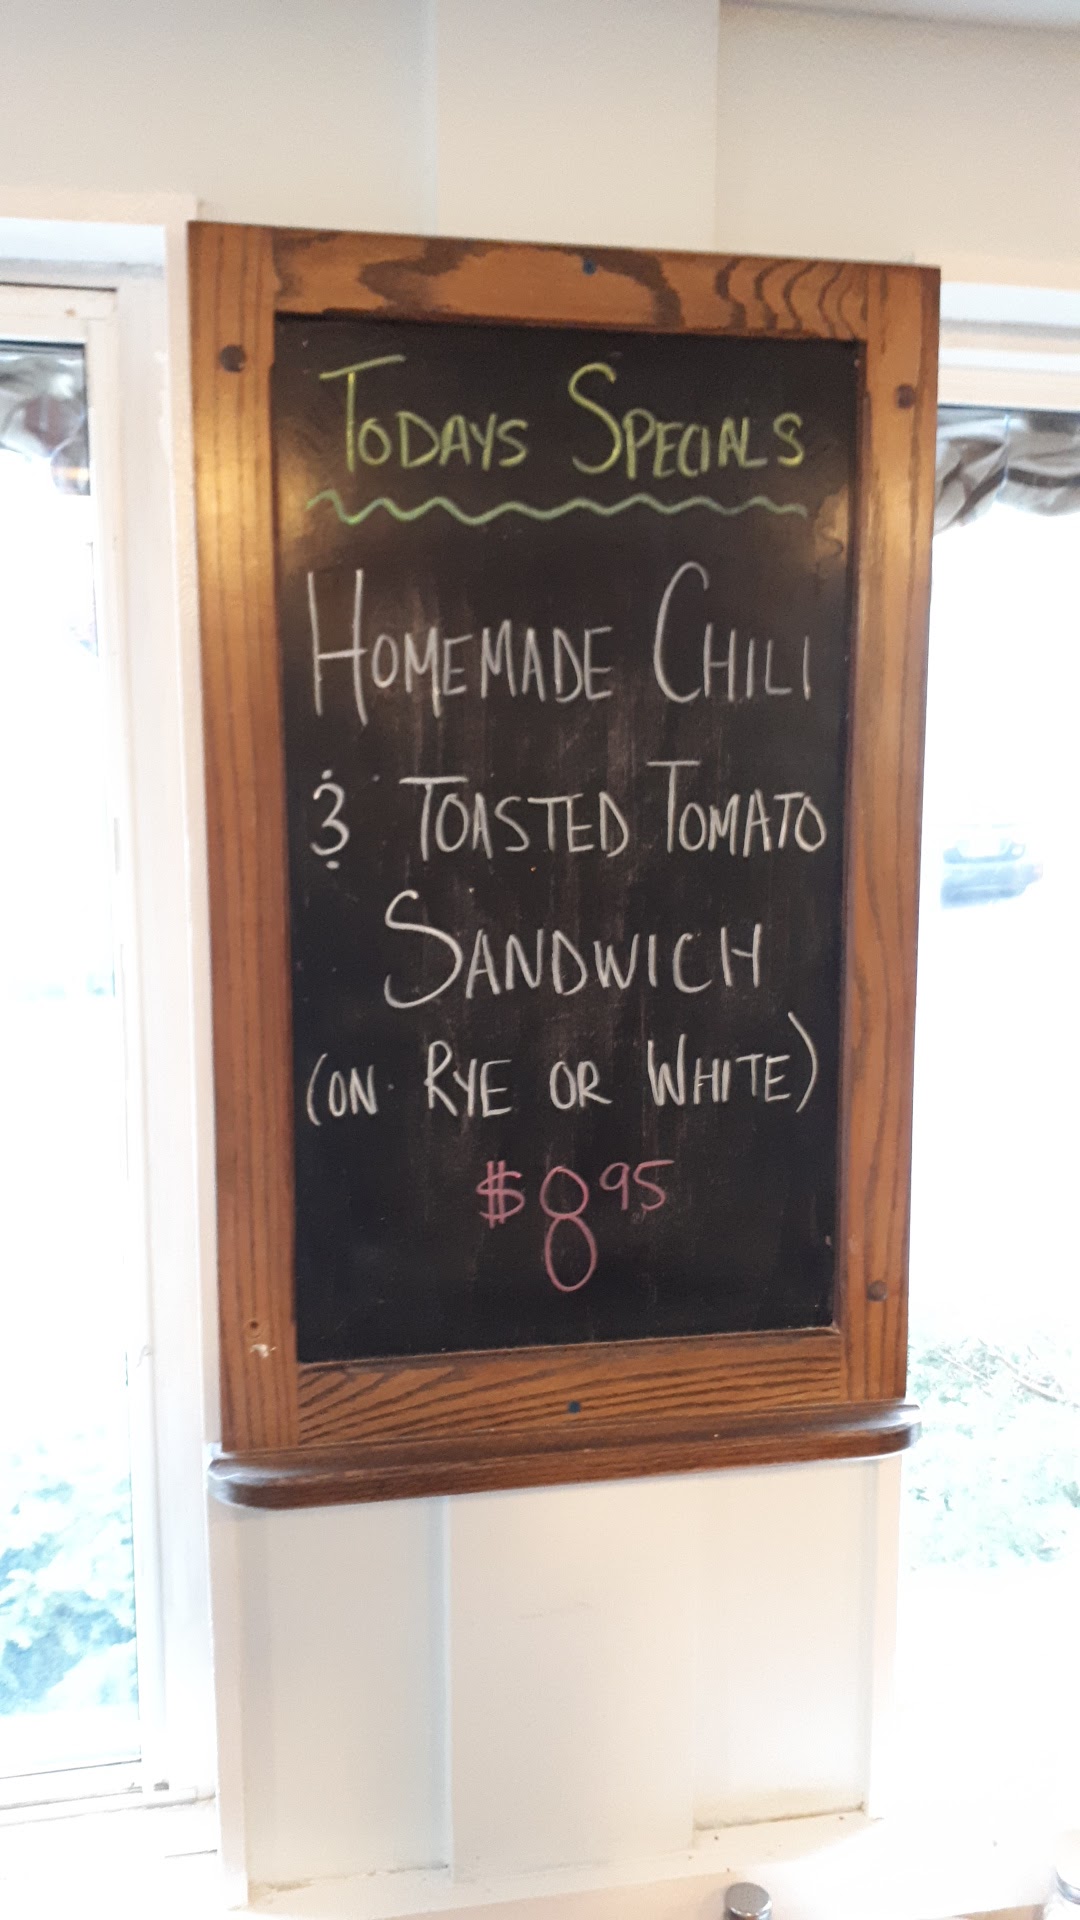 TODAYS SPECIALS
HOMEMADE CHILI
& TOASTED TOMATO
SANDWICH
(ON RYE OR WHITE)
$8 95